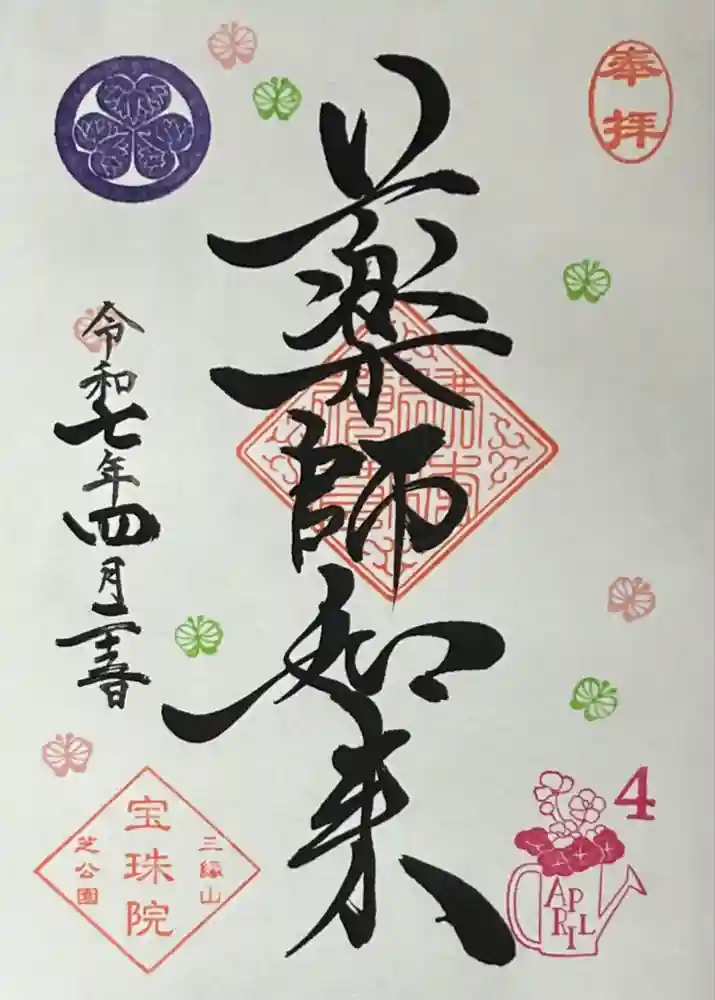 奉拝
薬師如来
令和七年四月
三縁山
宝珠院
芝公園
4
AP
RIL